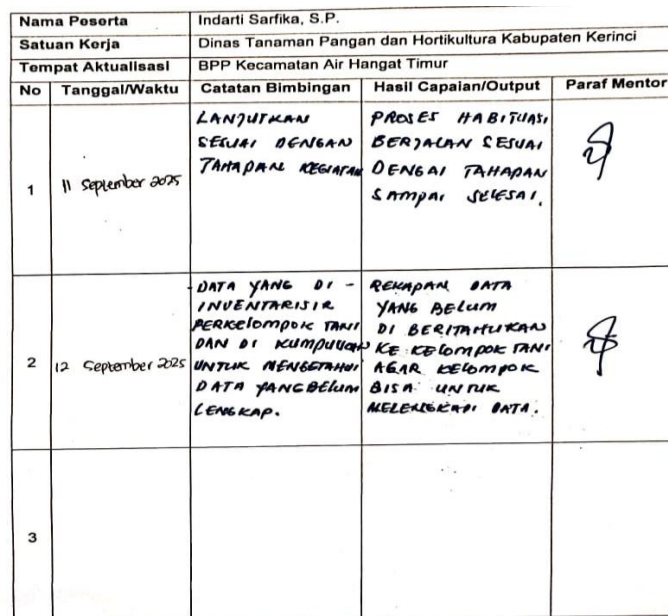 Nama Peserta Indarti Sarfika, S.P.
Satuan Kerja Dinas Tanaman Pangan dan Hortikultura Kabupaten Kerinci
Tempat Aktualisasi BPP Kecamatan Air Hangat Timur
No Tanggal/Waktu Catatan Bimbingan Hasil Capaian/Output Paraf Mentor
1
11 September 2025
LANJUTKAN
SESUAI DENGAN
TAHAPAN KEGIATAN
PROSES HABITUASI
BERJALAN SESUAI
DENGAI TAHAPAN
SAMPAI SELESAI.
2
12 September 2025
DATA YANG DI -
INVENTARISIR
PERKELOMPOK TANI
DAN DI KUMPULKAN
UNTUK MENGETAHUI
DATA YANG BELUM
LENGKAP.
REKAPAN DATA
YANG BELUM
DI BERITAHUKAN
KE KELOMPOK TANI
AGAR KELOMPOK
BISA UNTUK
MELENGKAPI DATA.
3